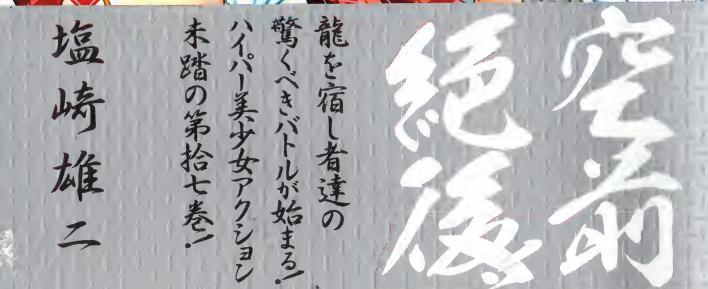 空前
絶後
龍を宿し者達の
驚くべきバトルが始まる!
ハイパー美少女アクション
未踏の第拾七巻!
塩崎雄二